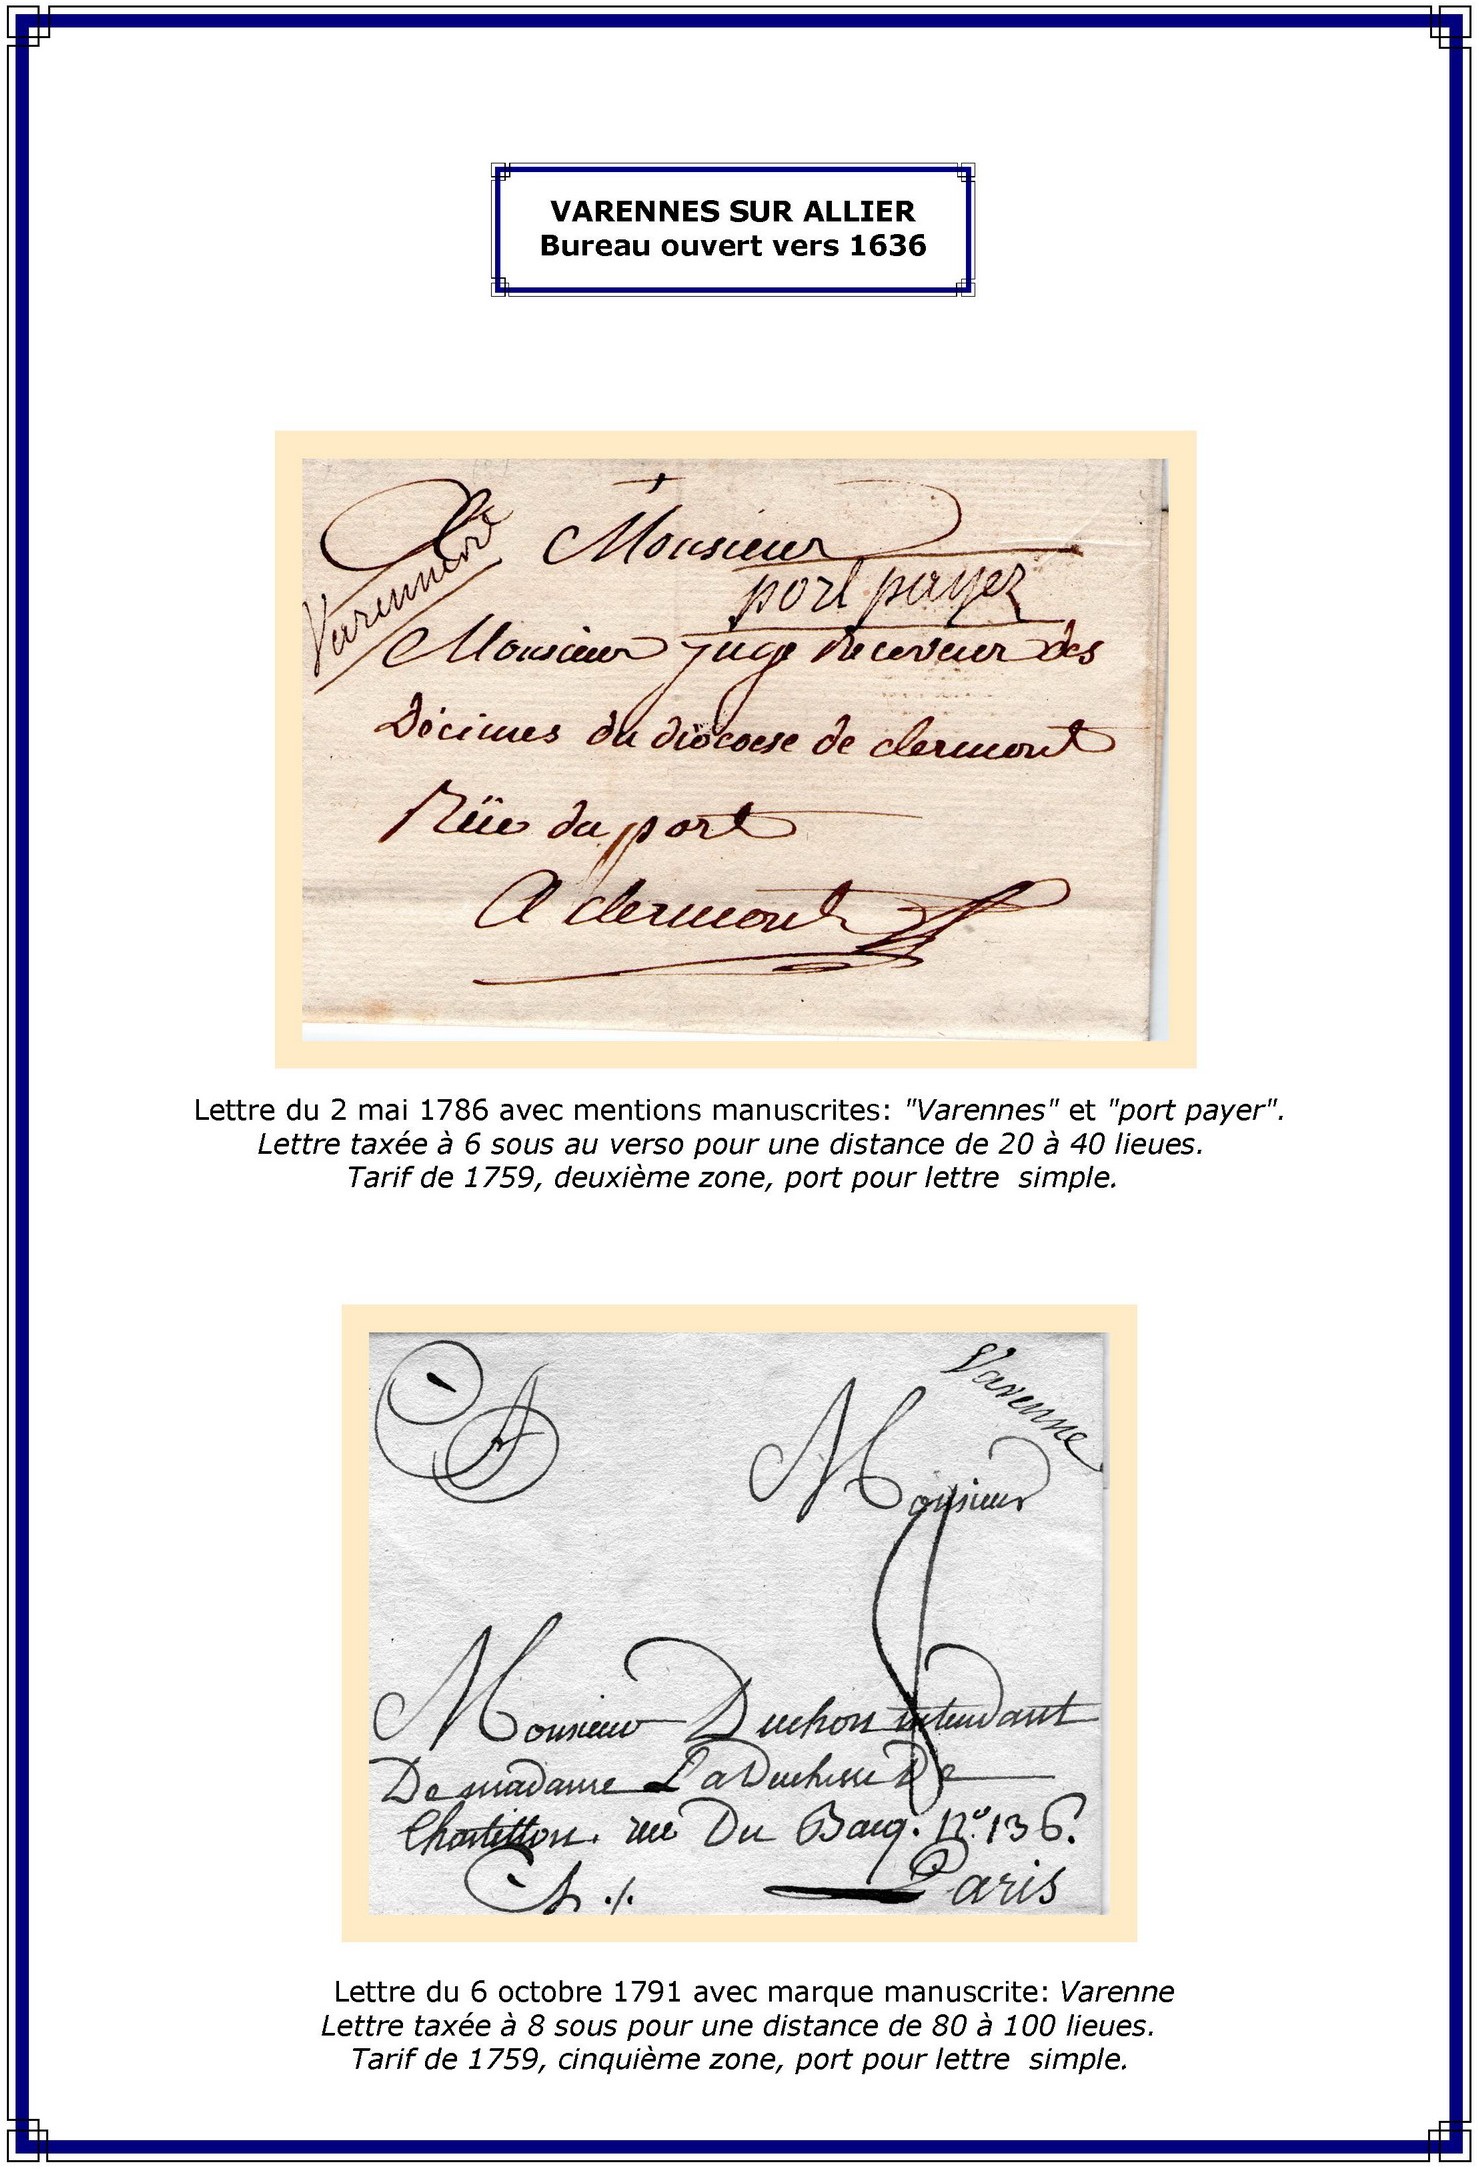 VARENNES SUR ALLIER
Bureau ouvert vers 1636
Monsieur
port payez
Monsieur juge receveur des
Décimes du diocoese de clermont
Rüe du port
A clermont
Lettre du 2 mai 1786 avec mentions manuscrites: "Varennes" et "port payer".
Lettre taxée à 6 sous au verso pour une distance de 20 à 40 lieues.
Tarif de 1759, deuxième zone, port pour lettre  simple.
Varenne
A
Monsieur
8
Monsieur Duchon intendant
De madame La Duchesse De
Chastillon. rue Du Bacq. N.º 136.
Paris
Lettre du 6 octobre 1791 avec marque manuscrite: Varenne
Lettre taxée à 8 sous pour une distance de 80 à 100 lieues.
Tarif de 1759, cinquième zone, port pour lettre  simple.